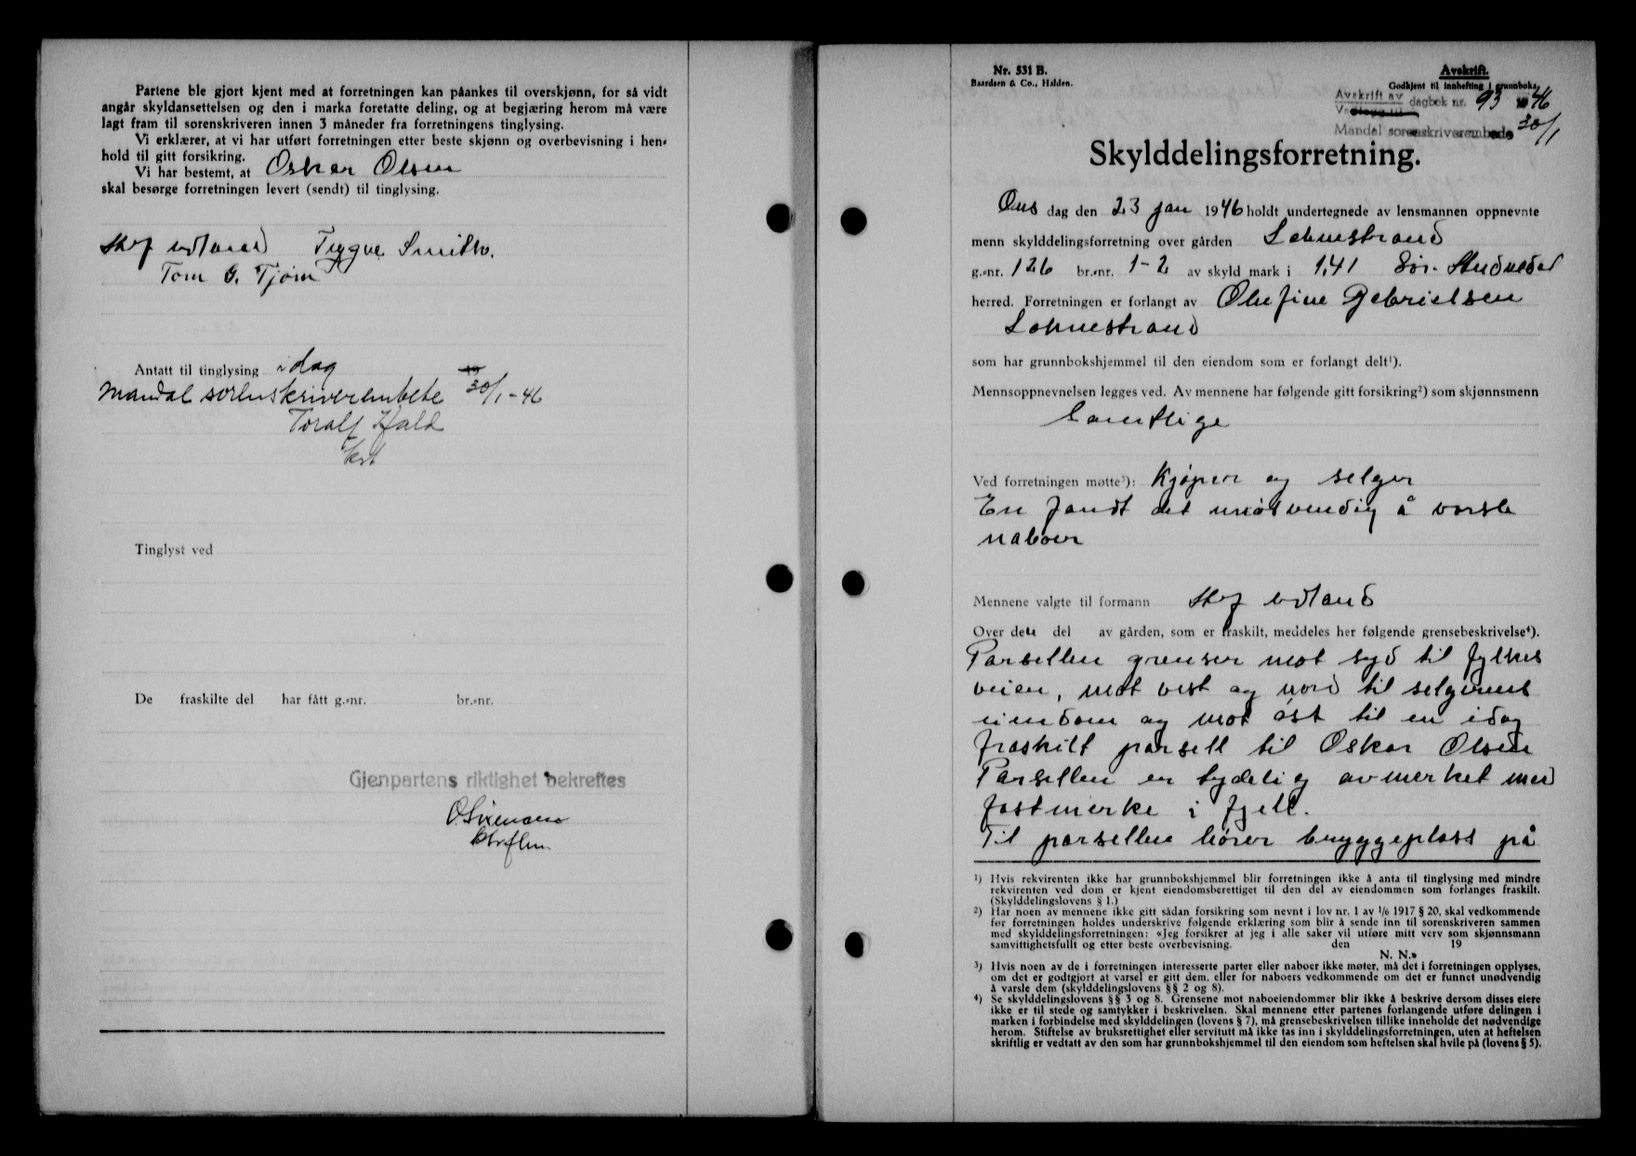 Partene ble gjort kjent med at forretningen kan påankes til overskjønn, for så vidt
angår skyldansettelsen og den i marka foretatte deling, og at begjæring herom må være
lagt fram til sorenskriveren innen 3 måneder fra forretningens tinglysing.
Vi erklærer, at vi har utført forretningen etter beste skjønn og overbevisning i hen-
hold til gitt forsikring.
Vi har bestemt, at Oskar Olsen
skal besørge forretningen levert (sendt) til tinglysing.
Udland Trygve Smith.
Tom G. Tjøm
Antatt til tinglysing i dag
Mandal sorenskriverembete 30/1-46
Toralf Hald
Tinglyst ved
De fraskilte del har fått g.-nr. br.-nr.
Gjenpartens riktighet bekreftes
Nr. 531 B.
Baardsen & Co., Halden.
Avskrift.
Godkjent til innhefting i grunnboka.
Avskrift av dagbok nr. 93 1946
Mandal sorenskriverembede 30/1
Skylddelingsforretning.
Ons dag den 23 jan 1946 holdt undertegnede av lensmannen oppnevnte
menn skylddelingsforretning over gården Lohnestrand
g.-nr. 126 br.-nr. 1-2 av skyld mark i 1,41 Sør-Audnedal
herred. Forretningen er forlangt av Olufine Gabrielsen
Lohnestrand
som har grunnbokshjemmel til den eiendom som er forlangt delt¹).
Mennsoppnevnelsen legges ved. Av mennene har følgende gitt forsikring²) som skjønnsmenn
Samtlige
Ved forretningen møtte³): Kjøper og selger
En fandt det unødvendig å varsle
naboer
Mennene valgte til formann Udland
Over den del av gården, som er fraskilt, meddeles her følgende grensebeskrivelse⁴).
Parsellen grenser mot syd til fylkes
veien, mot vest og nord til selgerens
eiendom og mot øst til en idag
fraskilt parsell til Oskar Olsen
Parsellen er tydelig avmerket med
fastmerke i fjell.
Til parsellen hører bryggeplass på
¹) Hvis rekvirenten ikke har grunnbokshjemmel blir forretningen ikke å anta til tinglysing med mindre
rekvirenten ved dom er kjent eiendomsberettiget til den del av eiendommen som forlanges fraskilt.
(Skylddelingslovens § 1.)
²) Har noen av mennene ikke gitt sådan forsikring som nevnt i lov nr. 1 av 1/6 1917 § 20, skal vedkommende
før forretningen holdes underskrive følgende erklæring som blir å sende inn til sorenskriveren sammen
med skylddelingsforretningen: «Jeg forsikrer at jeg i alle saker vil utføre mitt verv som skjønnsmann
samvittighetsfullt og etter beste overbevisning. den 19
N. N.»
³) Hvis noen av de i forretningen interesserte parter eller naboer ikke møter, må det i forretningen opplyses,
om det er godtgjort at varsel er gitt dem, eller for naboers vedkommende om det er funnet unødvendig
å varsle dem (skylddelingslovens §§ 2 og 8).
⁴) Se skylddelingslovens §§ 3 og 8. Grensene mot naboeiendommer blir ikke å beskrive dersom disses eiere
ikke er til stede og samtykker i beskrivelsen. Skal mennene etter partenes forlangende utføre delingen i
marken i forbindelse med skylddelingen (lovens § 7), må grensebeskrivelsen tillike inneholde det nødvendige
herom. Stiftelse av bruksrettighet eller servitutt må ikke tas inn i skylddelingsforretningen, uten at heftelsen
skriftlig er vedtatt av den som har grunnbokshjemmel til den eiendom som heftelsen skal hvile på (lovens § 5).